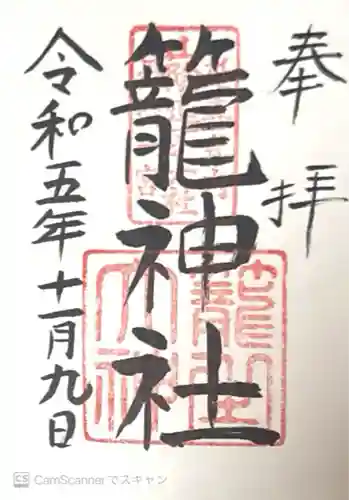 奉拝
籠神社
令和五年十一月九日
CS CamScannerでスキャン